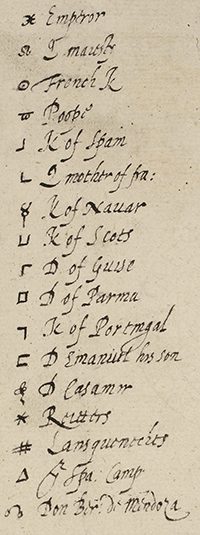 Emperor
Q maiestie
French K
Poope
K of Spain
Q mother of fra:
K of Nauar
K of Scots
D of Guise
D of Parma
K of Portingal
D Emanuel his son
D Casamir
Reitters
Lansquenechts
Spa: Camp
Don Ber: de Mendoza